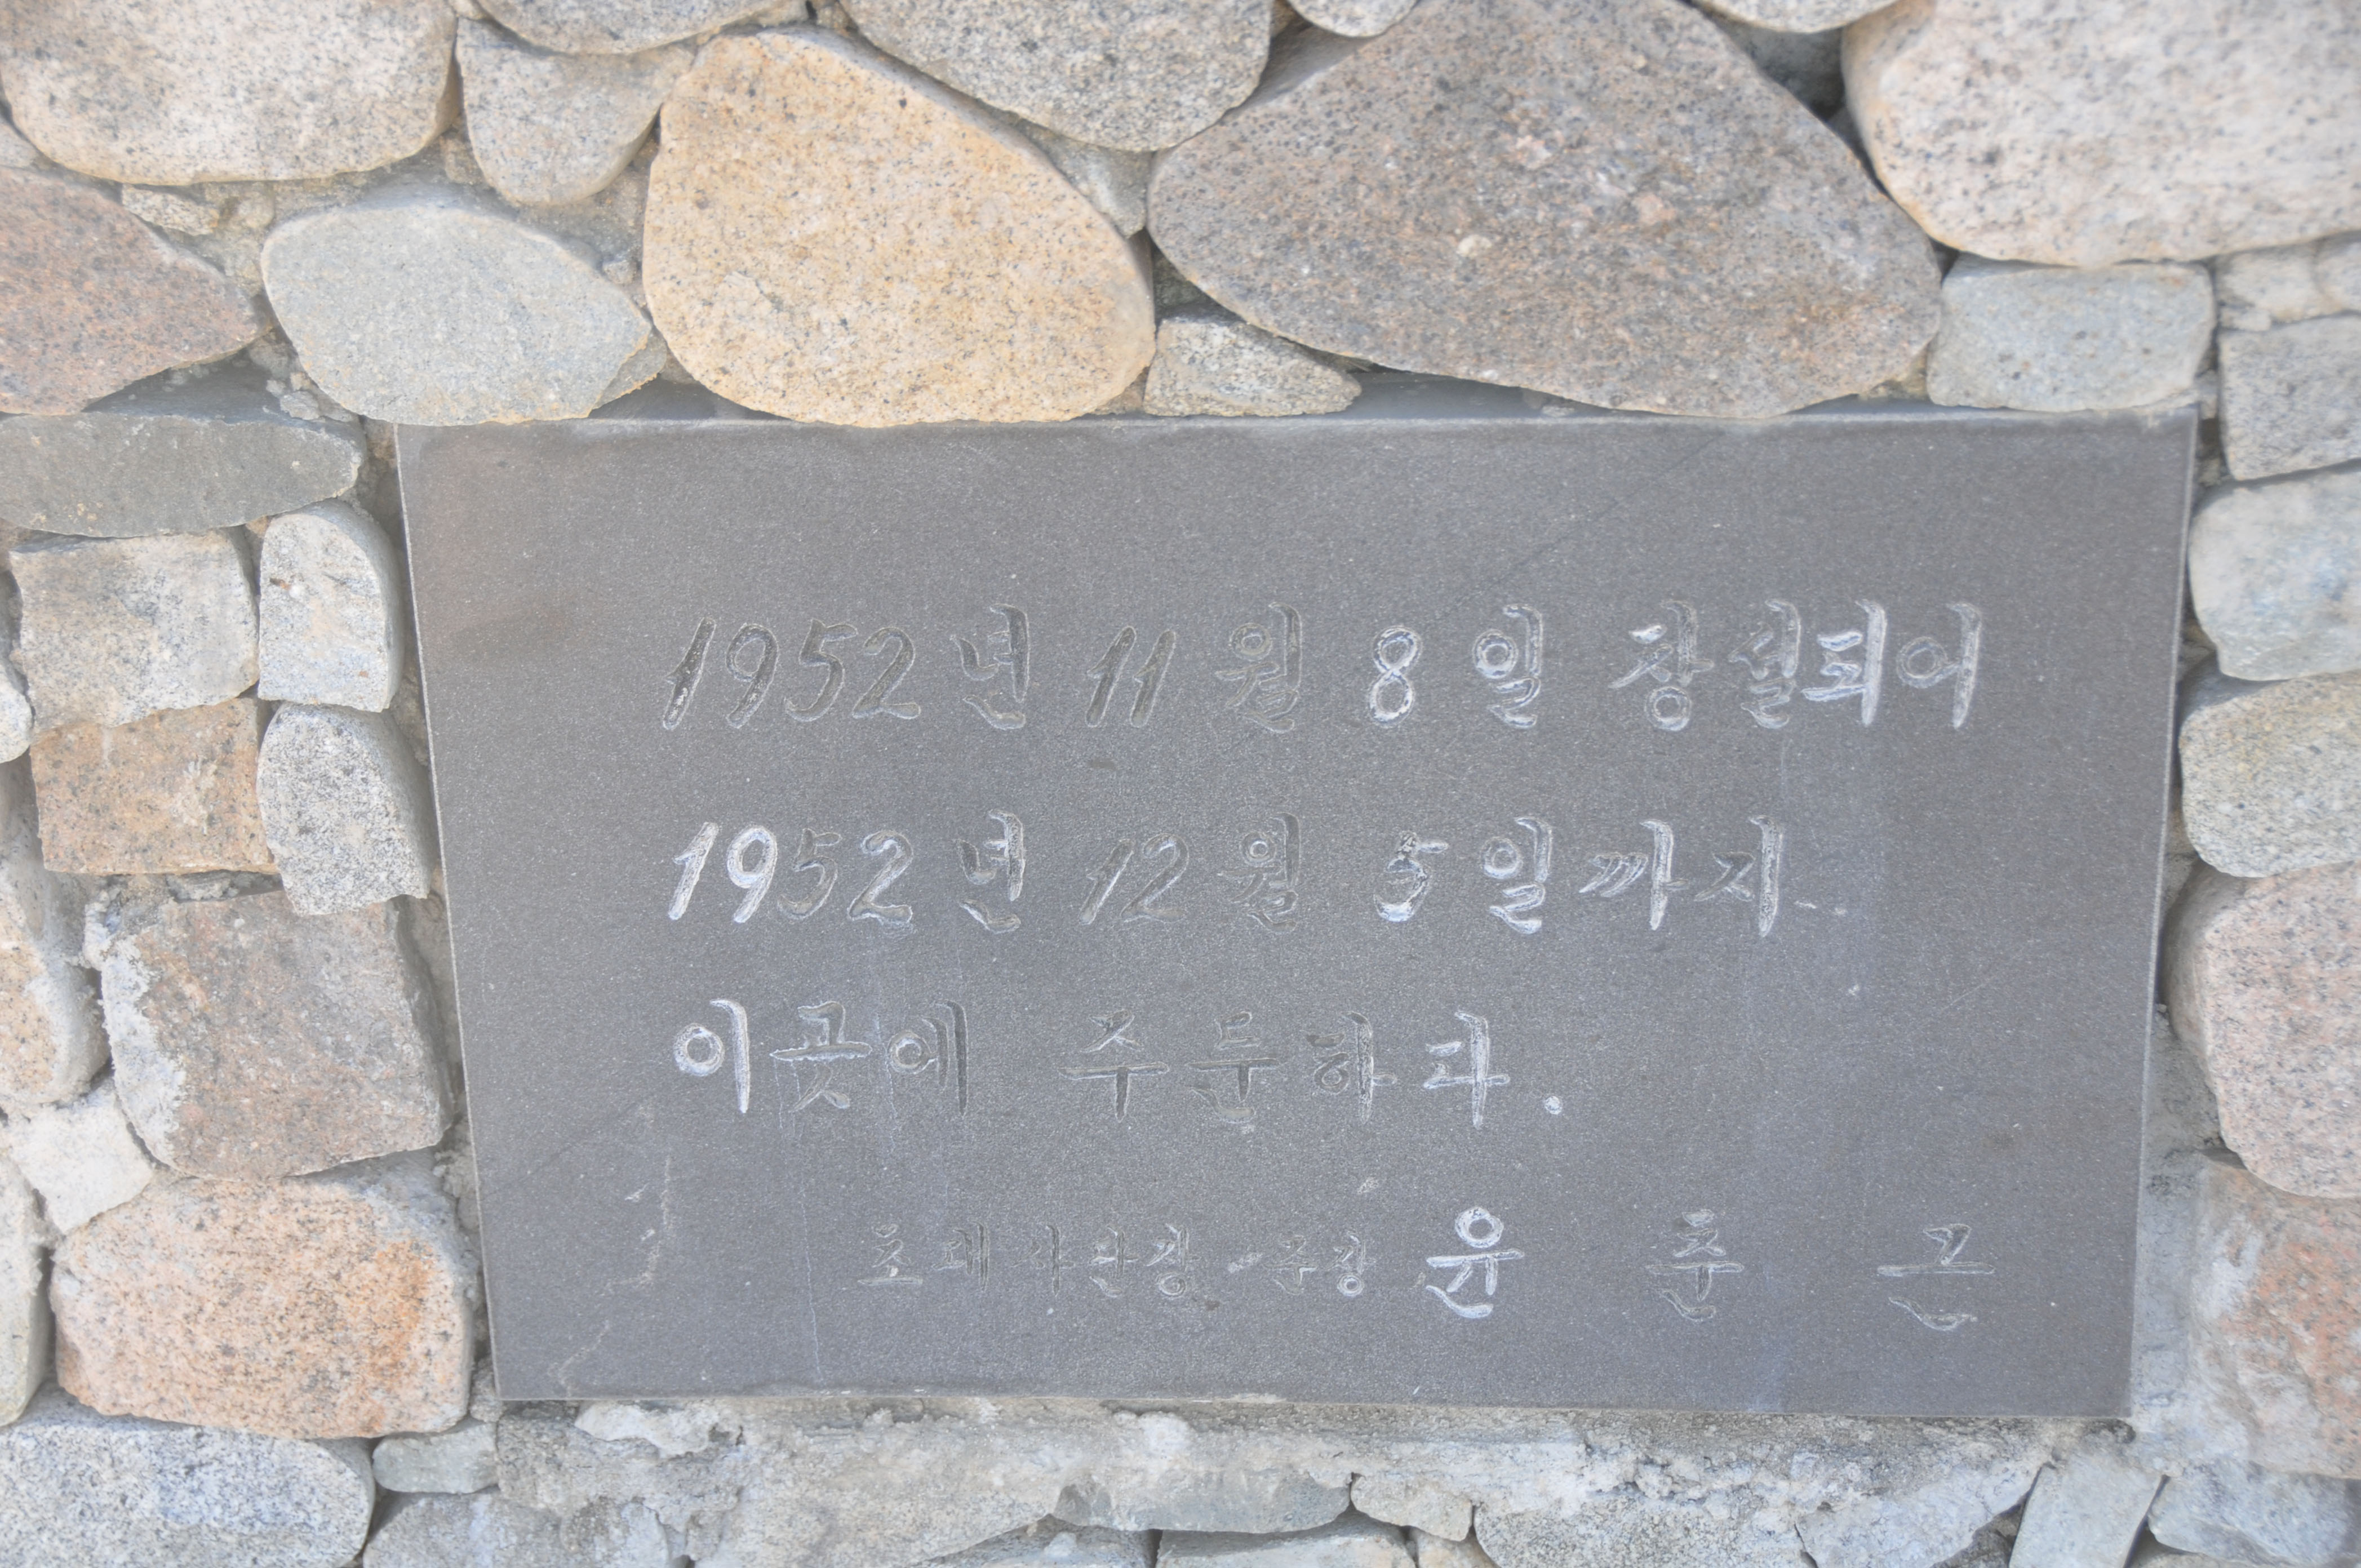 1952년 11월 8일 창설되어
1952년 12월 5일까지
이곳에 주둔하다.
초대사단장 준장 윤춘근